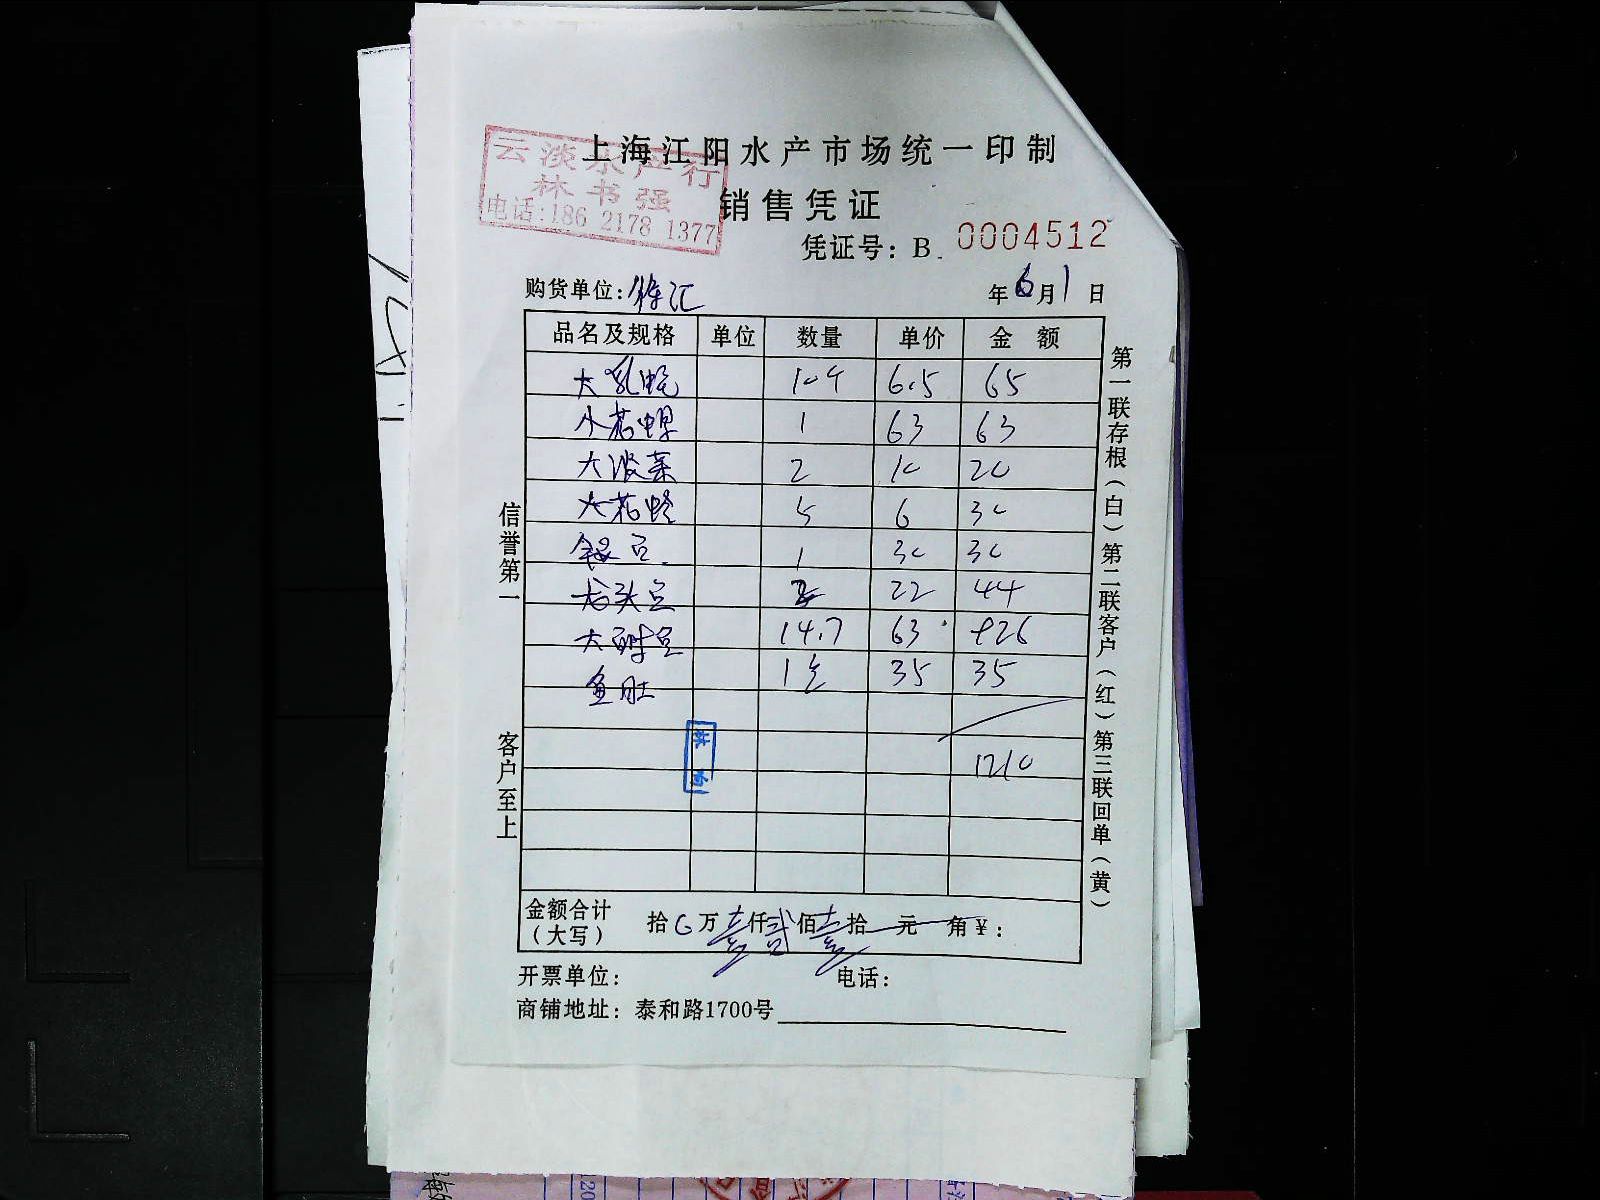 上海江阳水产市场统一印制
云淡水产行
林书强
电话:186 2178 1377
销售凭证
凭证号: B. 0004512
购货单位: 徐汇 年 6月1日
品名及规格 单位 数量 单价 金额
大 6.5 65
小花 1 63 63
大菠菜 2 10 20
大花 5 6 30
银豆 1 30 30
龙头豆 2 22 44
大 14.7 63 926
鱼肚 1 35 35
1210
金额合计(大写) 拾 万壹仟贰佰壹拾 元 角¥:
开票单位: 电话:
商铺地址: 泰和路1700号
信誉第一 客户至上
第一联存根(白)第二联客户(红)第三联回单(黄)